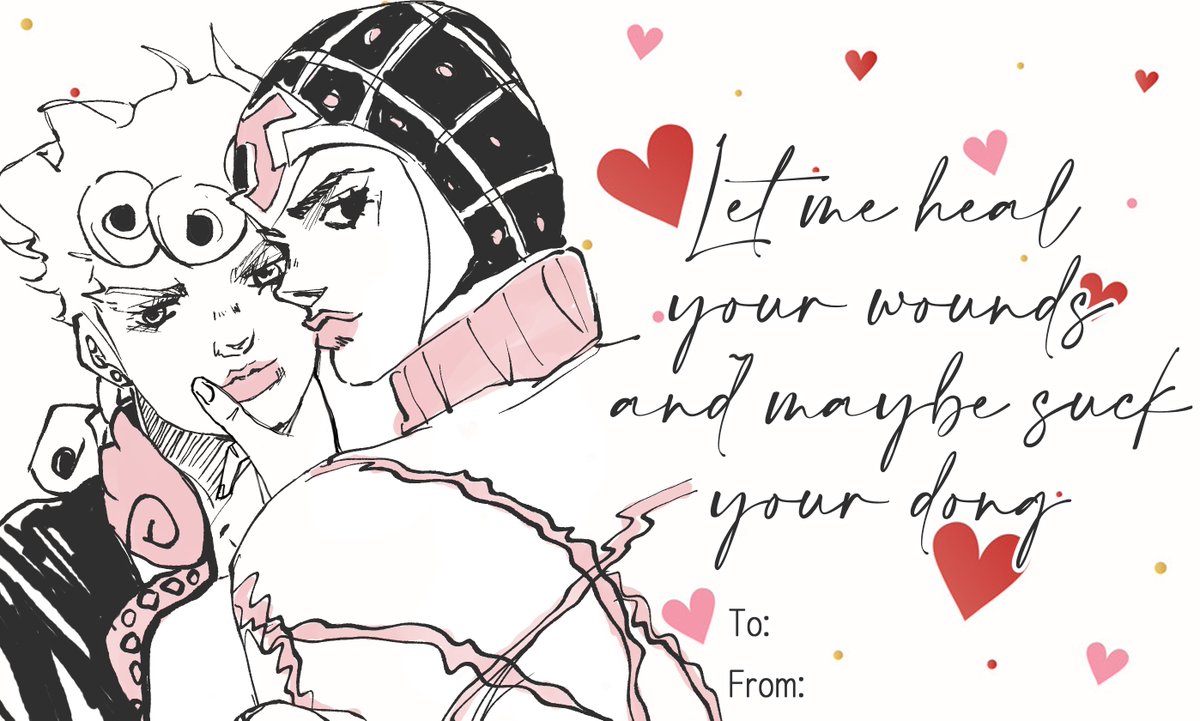 Let me heal
your wounds
and maybe suck
your dong
To:
From: